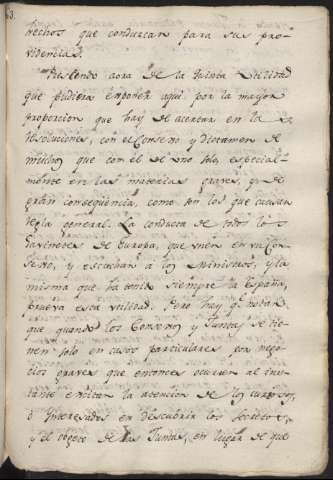 3.
hechos que conduzcan para sus pro-
videncias.
Prescindo aora de la quinta utilidad
que pudiera exponer aqui por la mayor
proporcion que hay de acertar en las
resoluciones, con el Consexo y dictamen de
muchos que con el de uno solo, especial-
mente en las materias graves, y de
gran consequencia, como son los que causan
regla general. La conducta de todos los
Gavinetes de Europa, que unen en un Con-
sexo, y escuchan a los Ministros, y la
misma que ha tenido siempre la España,
prueva esta utilidad. Pero hay que notar
que quando los Consexos y Juntas se tie-
nen solo en casos particulares por nego-
cios graves que entonces ocurren al ins-
tante excitan la atencion de los curiosos,
ò Interesados en descubrir los secretos,
y el objeto de las Juntas, en lugar de que